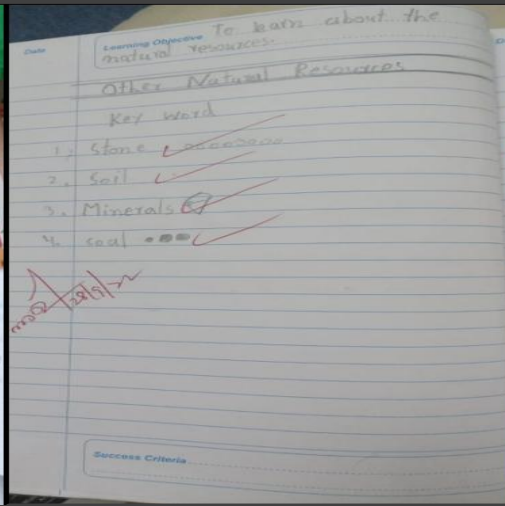 Date
Learning Objective To learn about the
natural resources.
Other Natural Resources
Key word
1. Stone
2. Soil
3. Minerals
4. soal
Success Criteria